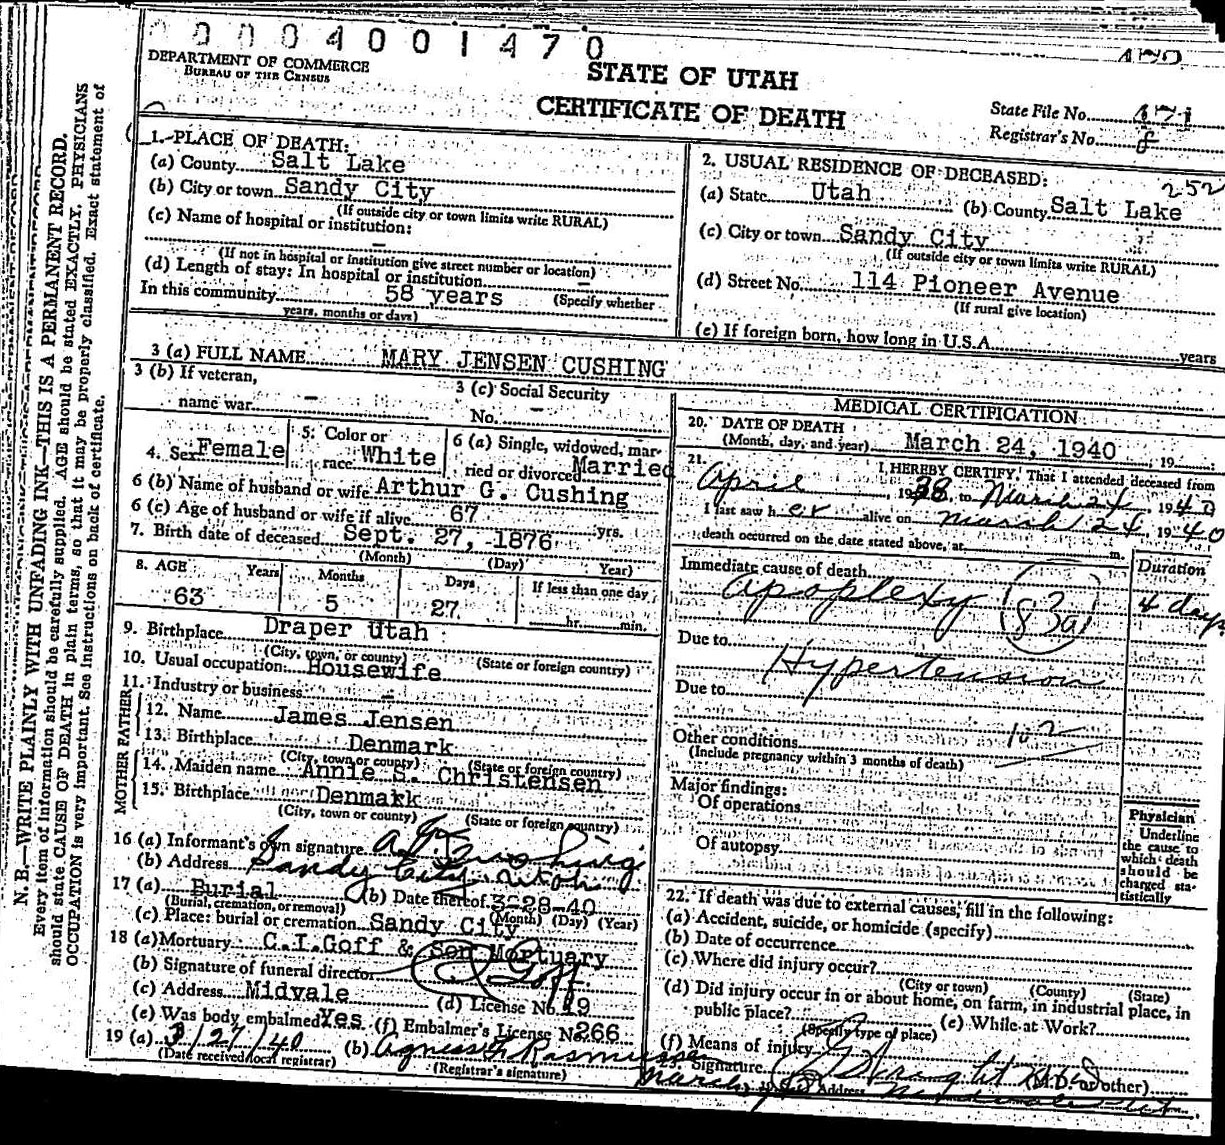 0000400 1470
DEPARTMENT OF COMMERCE
BUREAU OF THE CENSUS
STATE OF UTAH
CERTIFICATE OF DEATH
State File No.
Registrar's No. 8
N. B.—WRITE PLAINLY WITH UNFADING INK—THIS IS A PERMANENT RECORD.
Every item of information should be carefully supplied. AGE should be stated EXACTLY. PHYSICIANS
should state CAUSE OF DEATH in plain terms, so that it may be properly classified. Exact statement of
OCCUPATION is very important. See instructions on back of certificate.
1.-PLACE OF DEATH:
(a) County Salt Lake
(b) City or town Sandy City
(If outside city or town limits write RURAL)
(c) Name of hospital or institution:
—
(If not in hospital or institution give street number or location)
(d) Length of stay: In hospital or institution —
In this community 58 years (Specify whether
years, months or days)
2. USUAL RESIDENCE OF DECEASED:
252
(a) State Utah (b) County Salt Lake
(c) City or town Sandy City
(If outside city or town limits write RURAL)
(d) Street No. 114 Pioneer Avenue
(If rural give location)
(e) If foreign born, how long in U.S.A. years
3 (a) FULL NAME MARY JENSEN CUSHING
3 (b) If veteran,
name war —
3 (c) Social Security
No. —
4. Sex Female
5. Color or
race White
6 (a) Single, widowed, mar-
ried or divorced Married
6 (b) Name of husband or wife Arthur G. Cushing
6 (c) Age of husband or wife if alive 67 yrs.
7. Birth date of deceased Sept. 27, 1876
(Month) (Day) (Year)
8. AGE Years Months Days If less than one day
63 5 27 hr. min.
9. Birthplace Draper Utah
(City, town, or county) (State or foreign country)
10. Usual occupation Housewife
11. Industry or business —
FATHER
12. Name James Jensen
13. Birthplace Denmark
(City, town or county) (State or foreign country)
MOTHER
14. Maiden name Annie S. Christensen
15. Birthplace Denmakk
(City, town or county) (State or foreign country)
16 (a) Informant's own signature A. G. Cushing
(b) Address Sandy City Utah
17 (a) Burial (b) Date thereof 3-28-40
(Burial, cremation, or removal) (Month) (Day) (Year)
(c) Place: burial or cremation Sandy City
18 (a) Mortuary C.I.Goff & Son Mortuary
(b) Signature of funeral director Goff
(c) Address Midvale (d) License No. 119
(e) Was body embalmed Yes (f) Embalmer's License No. 266
19 (a) 3/27/40 (b) Agness H Rasmussen
(Date received local registrar) (Registrar's signature)
MEDICAL CERTIFICATION
20. DATE OF DEATH
(Month, day, and year) March 24, 1940, 19
21. I HEREBY CERTIFY, That I attended deceased from
April, 1938, to March 24 1940
I last saw her alive on March 24 1940
death occurred on the date stated above, at m.
Immediate cause of death Duration
Apoplexy (83a) 4 days
Due to
Hypertension
Due to
102
Other conditions
(Include pregnancy within 3 months of death)
Major findings:
Of operations
Of autopsy
Physician
Underline
the cause to
which death
should be
charged sta-
tistically
22. If death was due to external causes, fill in the following:
(a) Accident, suicide, or homicide (specify)
(b) Date of occurrence
(c) Where did injury occur?
(City or town) (County) (State)
(d) Did injury occur in or about home, on farm, in industrial place, in
public place?
(Specify type of place) (e) While at Work?
(f) Means of injury
23. Signature (M.D. or other)
March Address